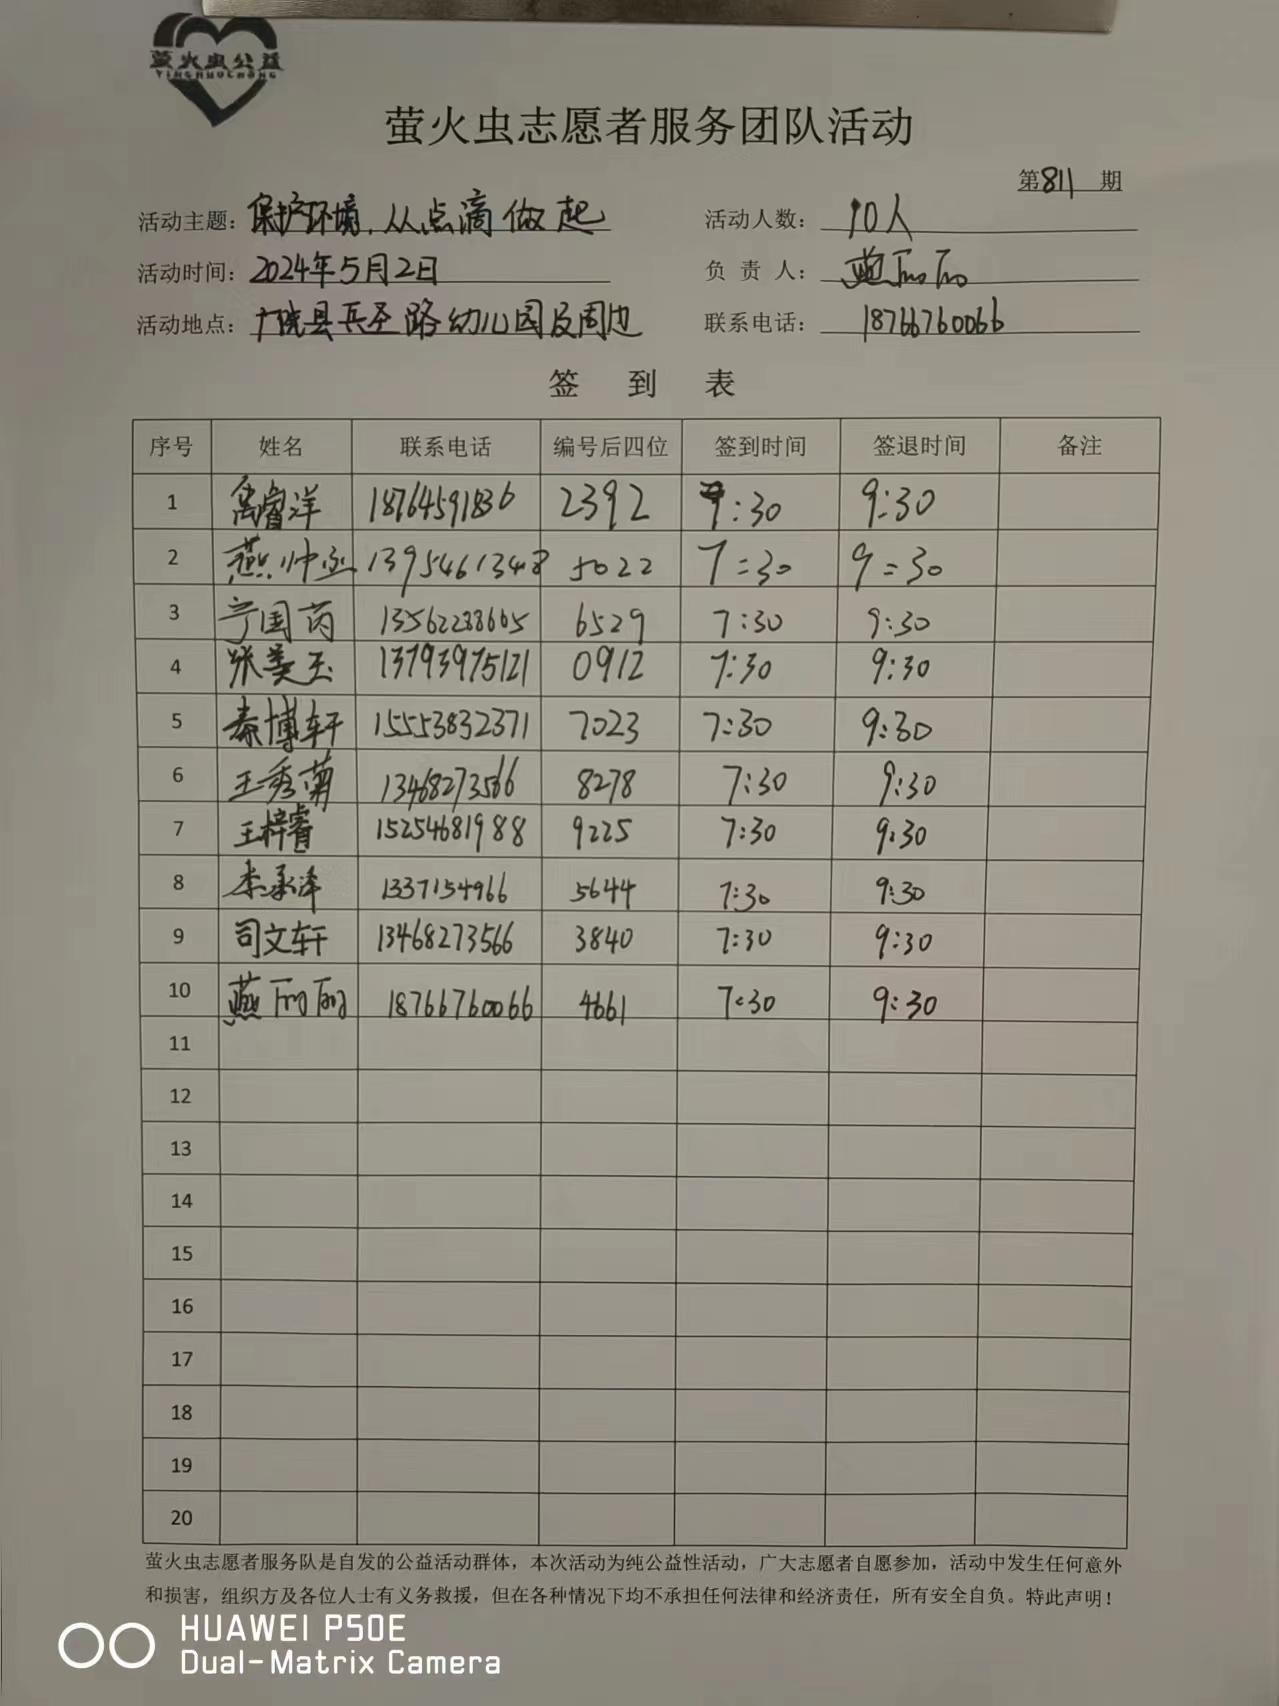 萤火虫公益
YINGHUOCHONG
萤火虫志愿者服务团队活动
第811期
活动主题：保护环境，从点滴做起 活动人数：10人
活动时间：2024年5月2日 负责人：燕丽丽
活动地点：广饶县兵圣路幼儿园及周边 联系电话：18766760066
签到表
序号 姓名 联系电话 编号后四位 签到时间 签退时间 备注
1 睿洋 18764591836 2392 7:30 9:30
2 燕帅 1395461348 5022 7:30 9:30
3 宁国芮 13562238665 6529 7:30 9:30
4 张美玉 13793975121 0912 7:30 9:30
5 秦博轩 15553832371 7023 7:30 9:30
6 王秀菊 13468273566 8278 7:30 9:30
7 王梓睿 15254681988 9225 7:30 9:30
8 李承泽 1337154966 5644 7:30 9:30
9 司文轩 13468273566 3840 7:30 9:30
10 燕丽丽 18766760066 4661 7:30 9:30
11
12
13
14
15
16
17
18
19
20
萤火虫志愿者服务队是自发的公益活动群体，本次活动为纯公益性活动，广大志愿者自愿参加，活动中发生任何意外
和损害，组织方及各位人士有义务救援，但在各种情况下均不承担任何法律和经济责任，所有安全自负。特此声明！
HUAWEI P50E
Dual-Matrix Camera